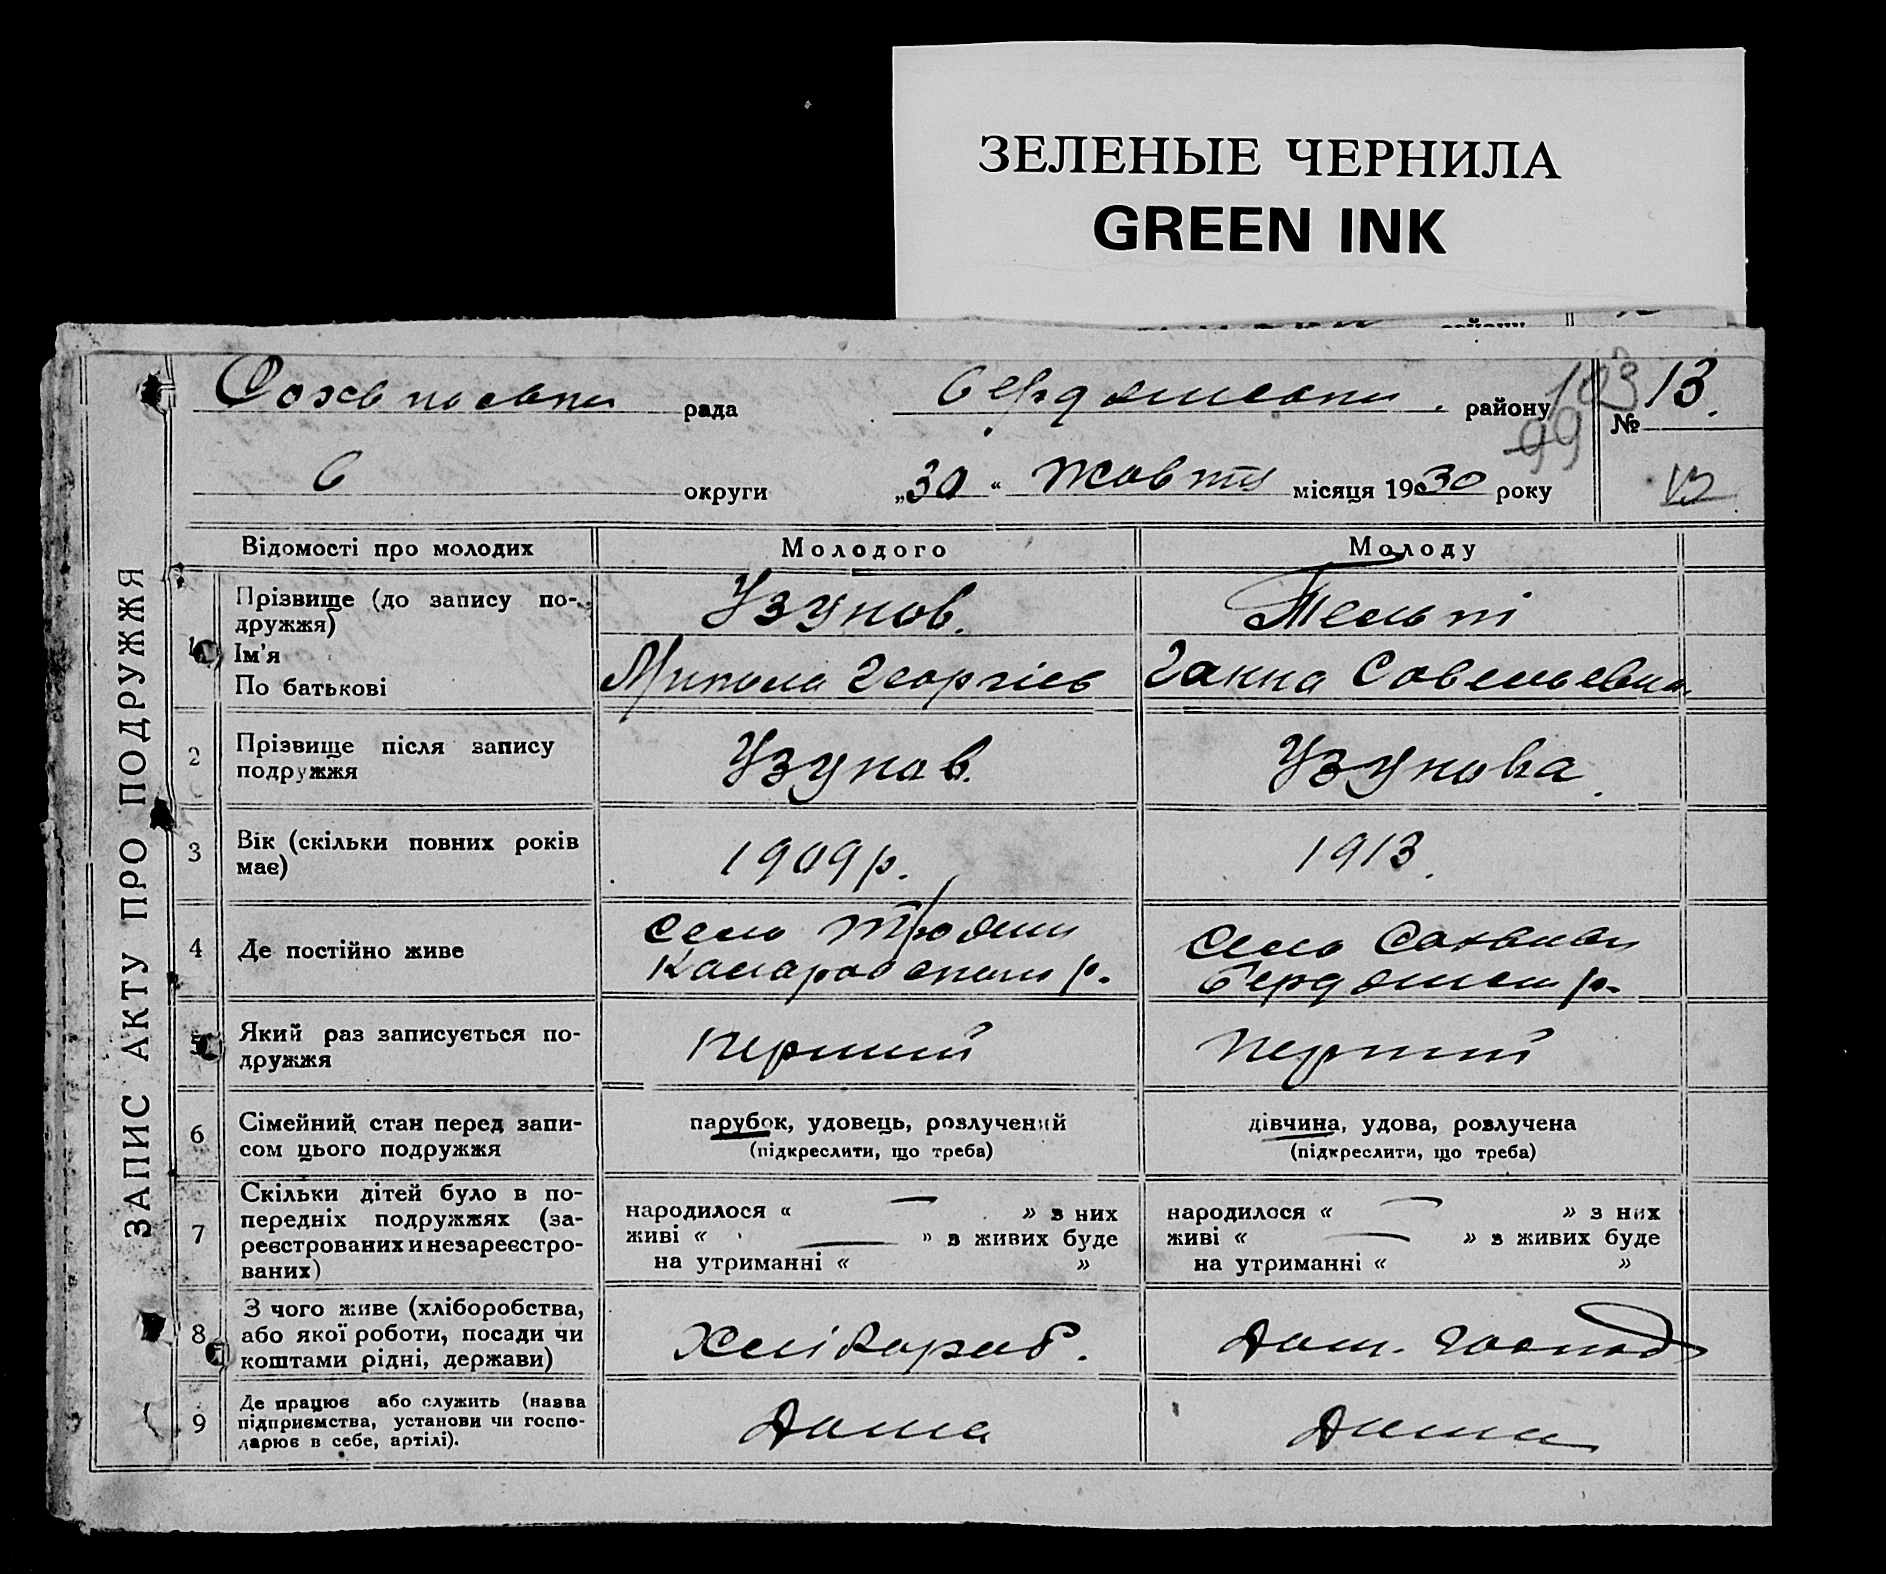 ЗЕЛЕНЫЕ ЧЕРНИЛА
GREEN INK
рада района району № 13.
103
99
округи „30“ Жовтня місяця 1930 року
13
ЗАПИС АКТУ ПРО ПОДРУЖЖЯ
Відомості про молодих Молодого Молоду
1 Прізвище (до запису по-
дружжя) Узунов.
Ім'я
По батькові Микола Георгієв Ганна Савельевна
2 Прізвище після запису
подружжя Узунов. Узунова.
3 Вік (скільки повних років
має) 1909 р. 1913.
4 Де постійно живе Село Трояни Село
р. р.
5 Який раз записується по-
дружжя перший перший
6 Сімейний стан перед запи-
сом цього подружжя
парубок, удовець, розлучений
(підкреслити, що треба)
дівчина, удова, розлучена
(підкреслити, що треба)
7 Скільки дітей було в по-
передніх подружжях (за-
реєстрованих и незареєстро-
ваних)
народилося « — » з них
живі « — » з живих буде
на утриманні « »
народилося « — » з них
живі « — » з живих буде
на утриманні « »
8 З чого живе (хліборобства,
або якої роботи, посади чи
коштами рідні, держави) Хлібороб. Дом. господ
9 Де працює або служить (назва
підприємства, установи чи госпо-
дарює в себе, артілі). Дома Дома